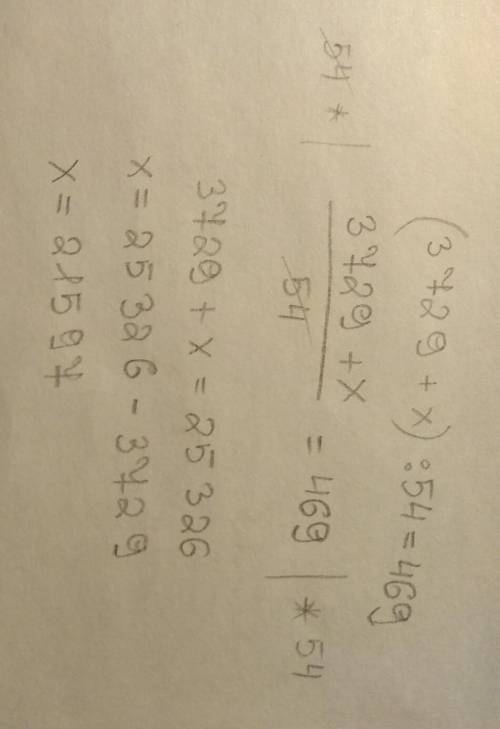 (3429 + x) : 54 = 469
54 * | (3429 + x)/54 = 469 | * 54
3429 + x = 25326
x = 25326 - 3429
x = 21597